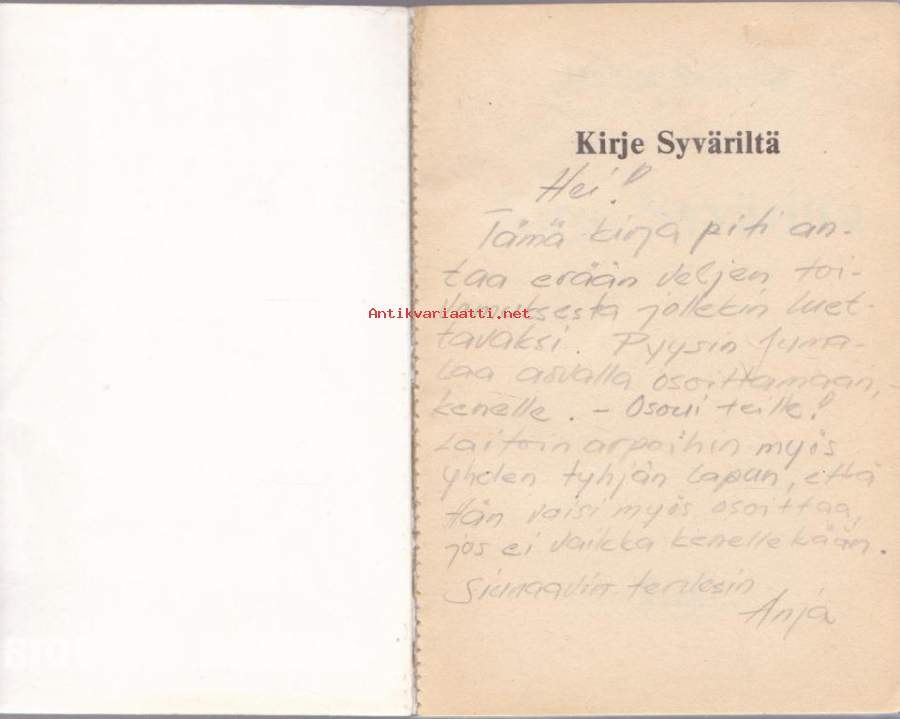 Kirje Syväriltä
Hei!
Tämä kirja piti an-
taa erään veljen toi-
vomuksesta jollekin luet-
Antikvariaatti.net
tavaksi. Pyysin Juma-
laa arvalla osoittamaan,
kenelle. – Osoui teille!
Laitoin arpoihin myös
yhden tyhjän lapun, että
Hän voisi myös osoittaa,
jos ei vaikka kenellekään.
Siunaavin terveisin
Anja